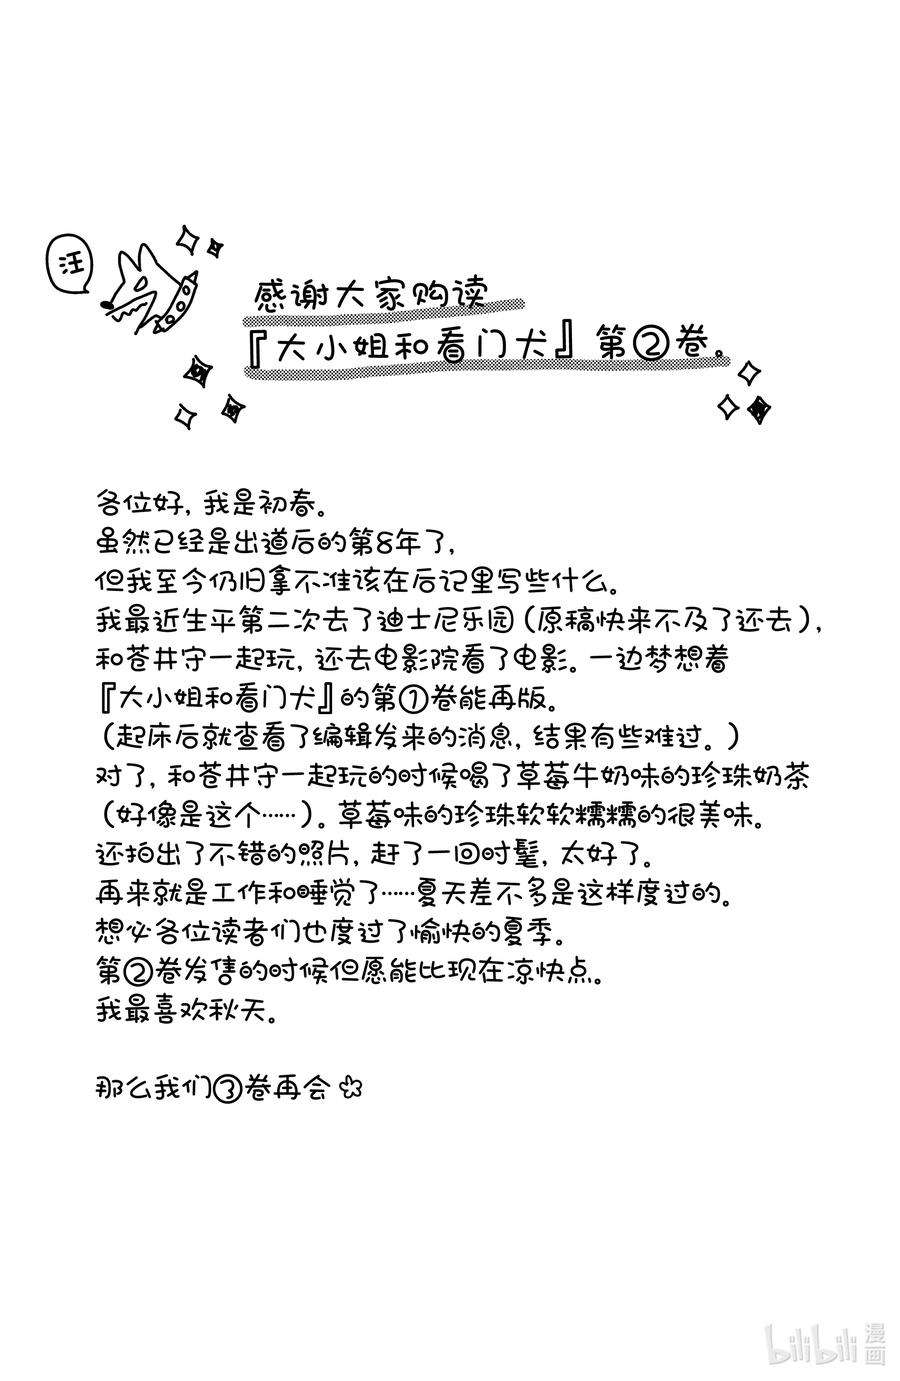 汪
感谢大家购读
『大小姐和看门犬』第②卷。
各位好，我是初春。
虽然已经是出道后的第8年了，
但我至今仍旧拿不准该在后记里写些什么。
我最近生平第二次去了迪士尼乐园（原稿快来不及了还去），
和苍井守一起玩，还去电影院看了电影。一边梦想着
『大小姐和看门犬』的第①卷能再版。
（起床后就查看了编辑发来的消息，结果有些难过。）
对了，和苍井守一起玩的时候喝了草莓牛奶味的珍珠奶茶
（好像是这个……）。草莓味的珍珠软软糯糯的很美味。
还拍出了不错的照片，赶了一回时髦，太好了。
再来就是工作和睡觉了……夏天差不多是这样度过的。
想必各位读者们也度过了愉快的夏季。
第②卷发售的时候但愿能比现在凉快点。
我最喜欢秋天。
那么我们③卷再会
bilibili 漫画